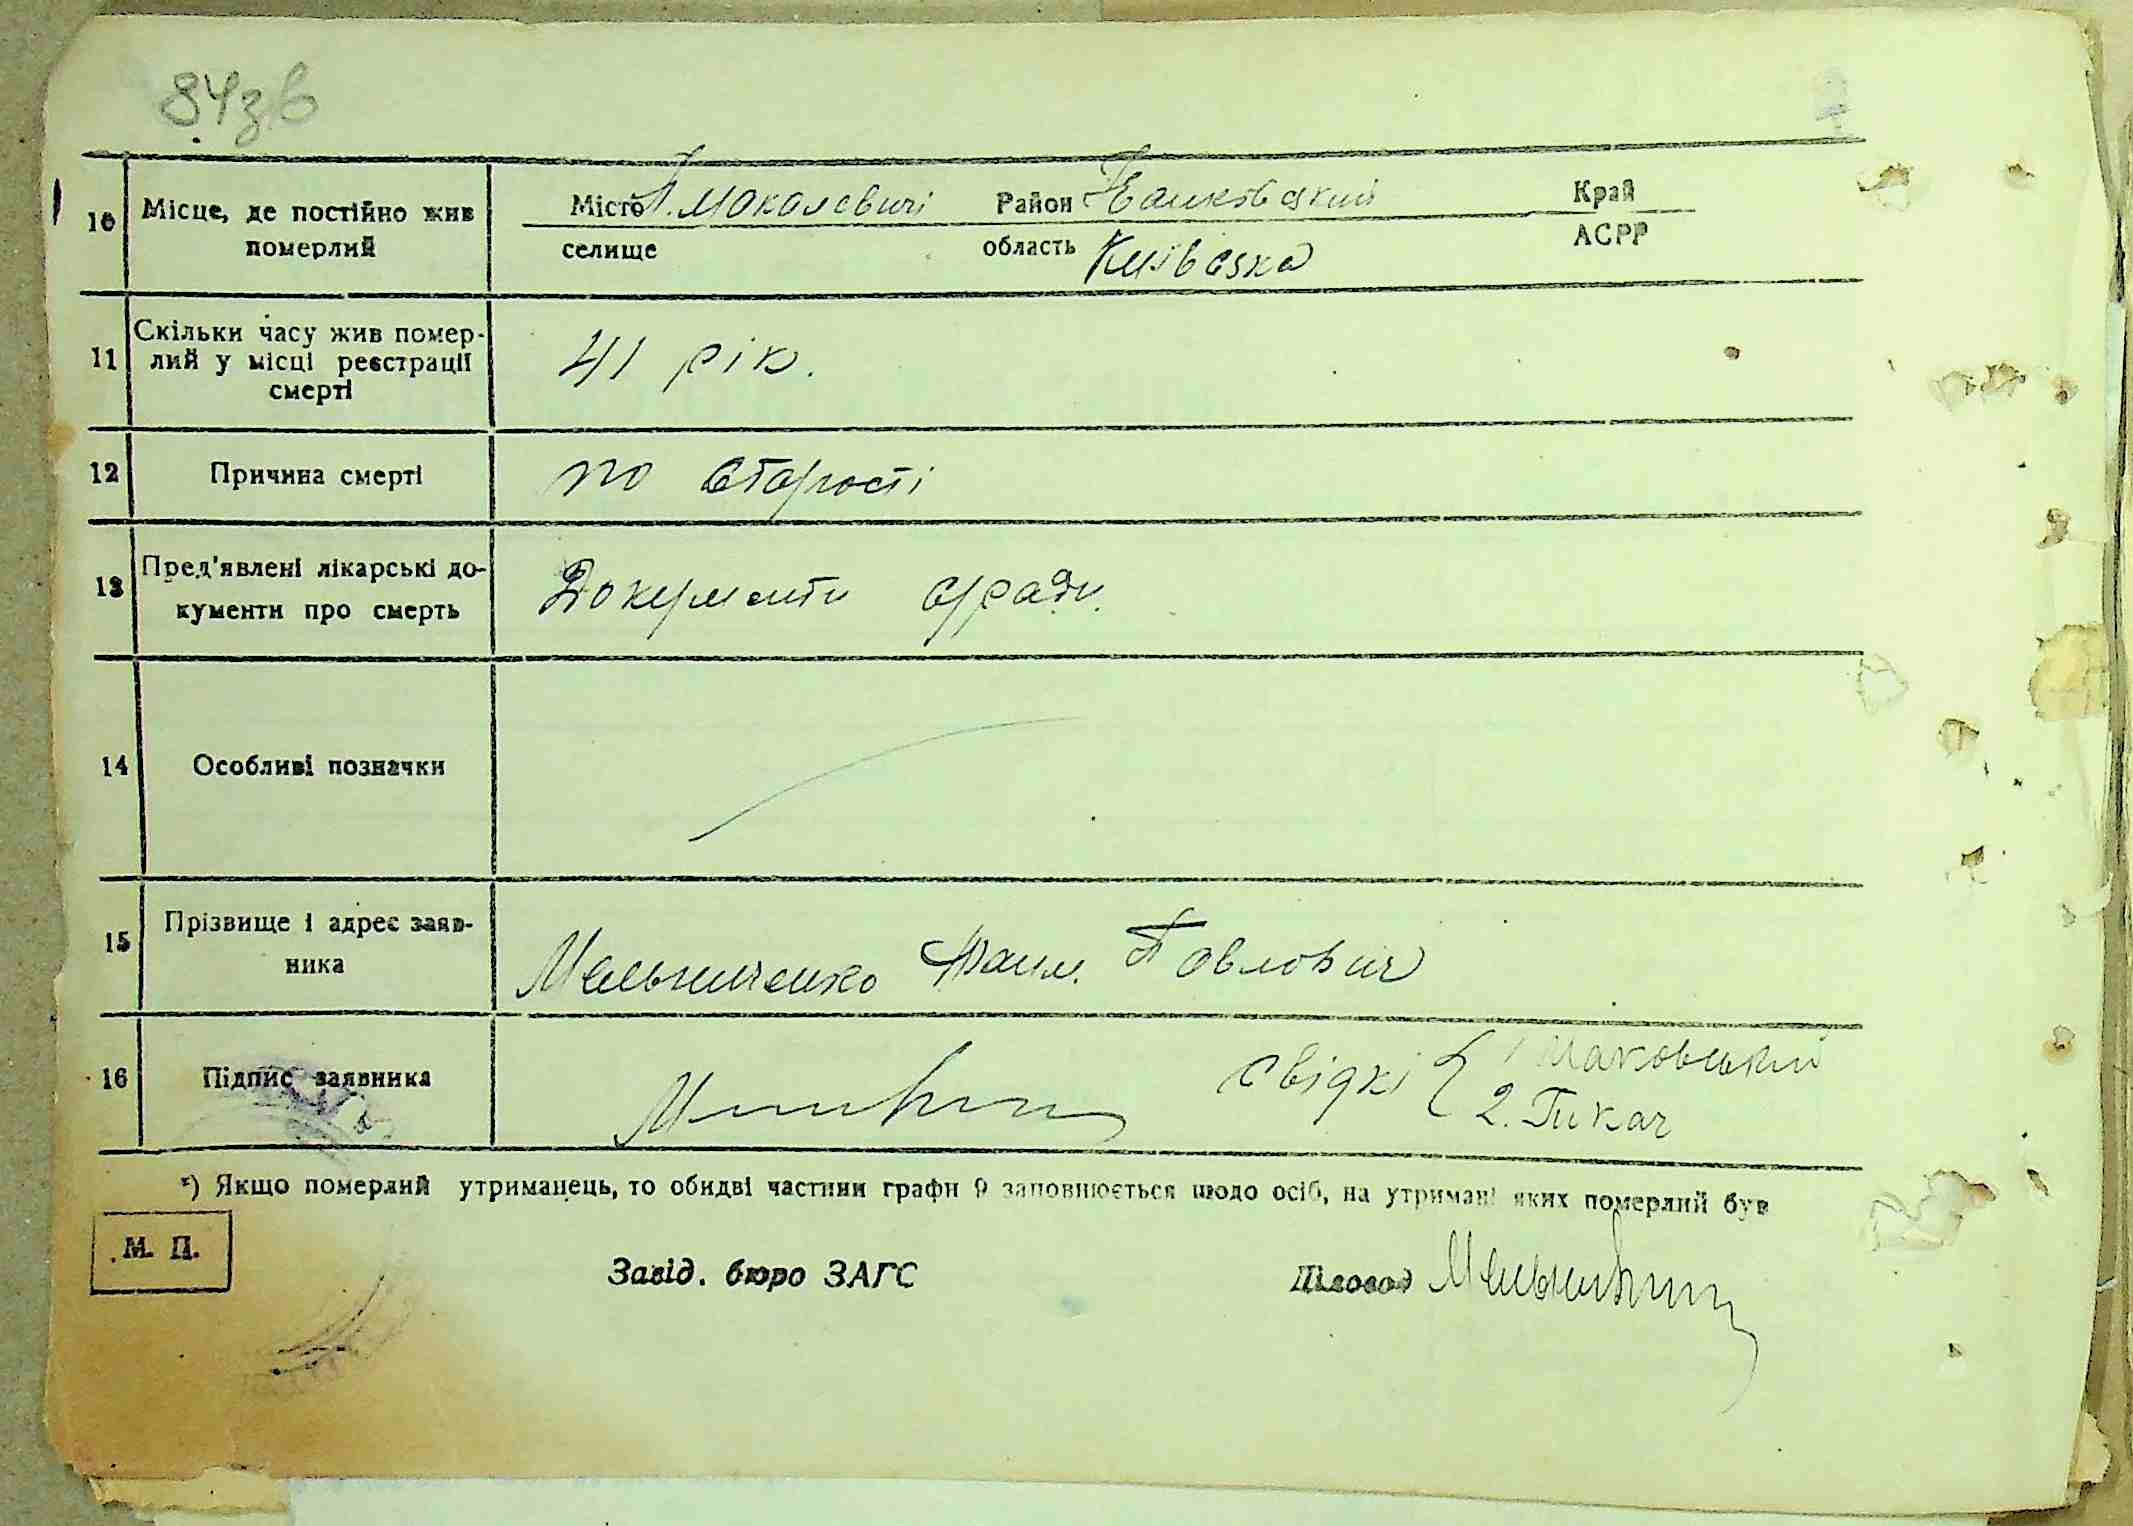 84зв
10 Місце, де постійно жив Місто Л. Мокалевичі Район Іванковський Край
померлий селище область Київська АСРР
Скільки часу жив помер-
11 лий у місці реєстрації 41 рік.
смерті
12 Причина смерті по старості
13 Пред'явлені лікарські до- Документи сради.
кументи про смерть
14 Особливі позначки
15 Прізвище і адрес заяв- Мельниченко Павлович
ника
16 Підпис заявника свідкі { 1 Маковський
2. Ткач
*) Якщо померлий утриманець, то обидві частини графи 9 заповнюється щодо осіб, на утримані яких померлий був
М. П.
Завід. бюро ЗАГС Діловод